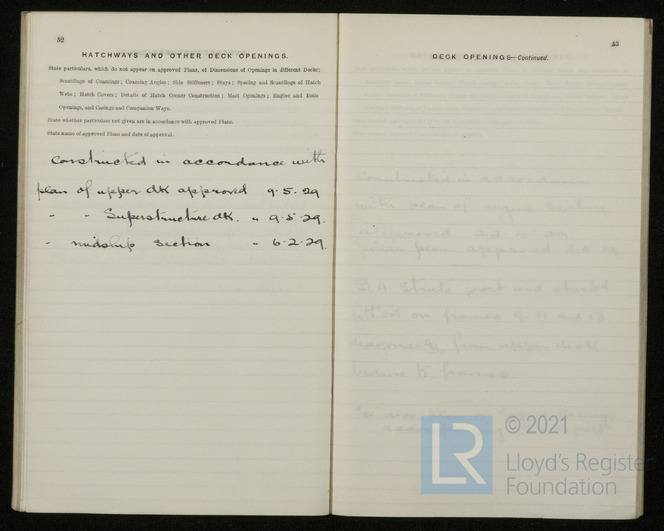 52
HATCHWAYS AND OTHER DECK OPENINGS.
State particulars, which do not appear on approved Plans, of Dimensions of Openings in different Decks;
Scantlings of Coamings; Coaming Angles; Side Stiffeners; Stays; Spacing and Scantlings of Hatch
Webs; Hatch Covers; Details of Hatch Corner Construction; Mast Openings; Engine and Boiler
Openings, and Casings and Companion Ways.
State whether particulars not given are in accordance with approved Plans.
State name of approved Plans and date of approval.
Constructed in accordance with
plan of upper dk approved 9.5.29
" " Superstructure dk. " 9.5.29.
" midship section " 6.2.29.
53
DECK OPENINGS—Continued.
Constructed in accordance
with plan of engine
approved
plan approved
B.A. Struts port and starbd
fitted on frames 9. 11 and 13
from upper deck
to frames
© 2021
LR
Lloyd's Register
Foundation